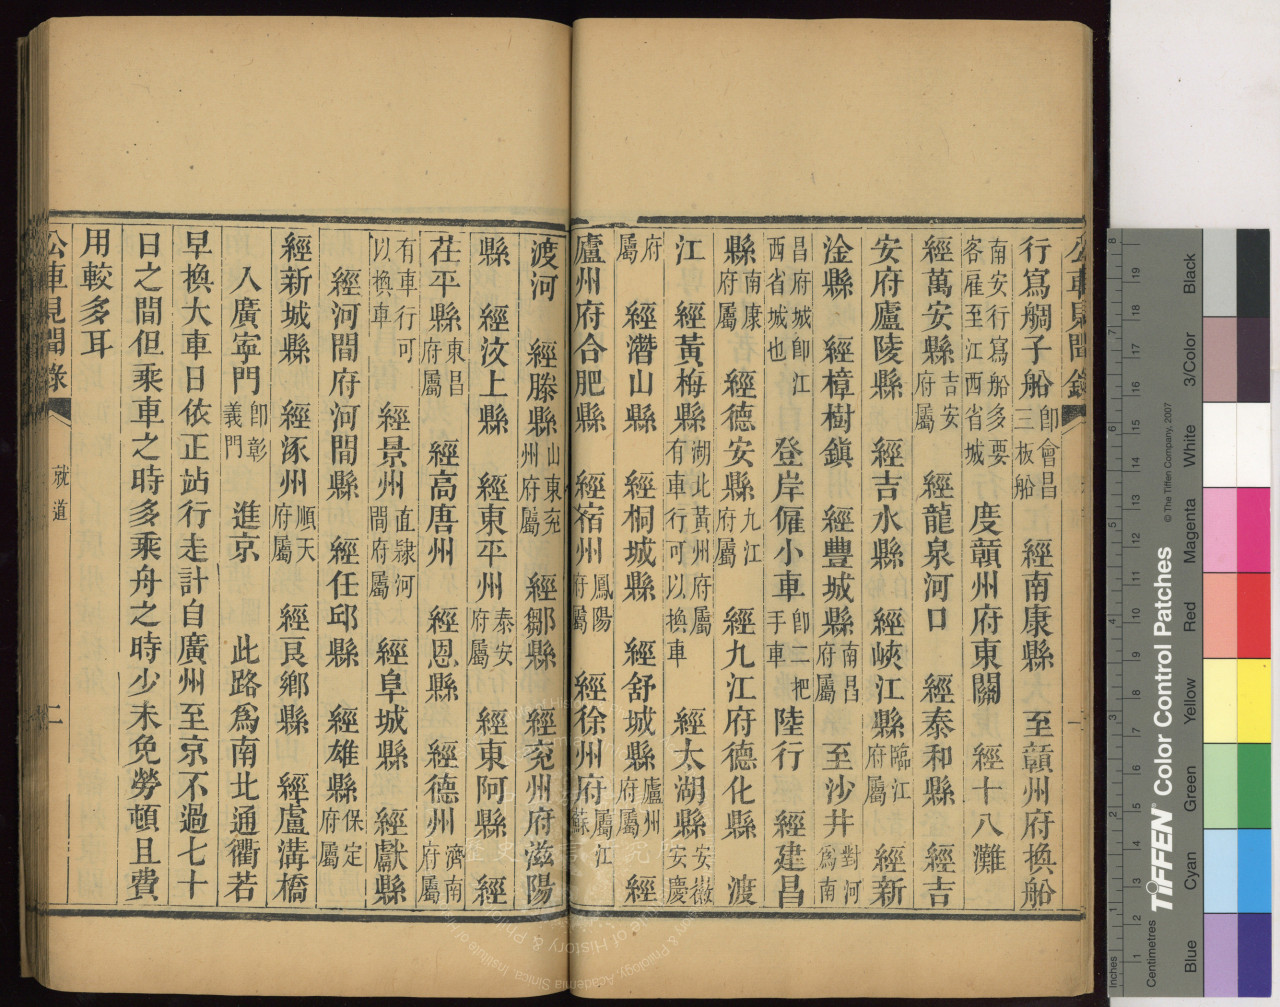 公車見聞錄
一
行寫艒子船即會昌三板船 經南康縣 至贛州府換船
南安行寫船多要客雇至江西省城 度贛州府東關 經十八灘
經萬安縣吉安府屬 經龍泉河口 經泰和縣 經吉
安府廬陵縣 經吉水縣 經峽江縣臨江府屬 經新
淦縣 經樟樹鎮 經豐城縣南昌府屬 至沙井對河為南
昌府城即江西省城也 登岸僱小車即二把手車 陸行 經建昌
縣南康府屬 經德安縣九江府屬 經九江府德化縣 渡
江 經黃梅縣湖北黃州府屬有車行可以換車 經太湖縣安徽安慶
府屬 經潛山縣 經桐城縣 經舒城縣廬州府屬 經
廬州府合肥縣 經宿州鳳陽府屬 經徐州府屬江蘇
渡河 經滕縣山東兗州府屬 經鄒縣 經兗州府滋陽
縣 經汶上縣 經東平州泰安府屬 經東阿縣 經
茌平縣東昌府屬 經高唐州 經恩縣 經德州濟南府屬
有車行可以換車 經景州直隸河間府屬 經阜城縣 經獻縣
經河間府河間縣 經任邱縣 經雄縣保定府屬
經新城縣 經涿州順天府屬 經良鄉縣 經盧溝橋
入廣寧門即彰義門 進京 此路為南北通衢若
早換大車日依正站行走計自廣州至京不過七十
日之間但乘車之時多乘舟之時少未免勞頓且費
用較多耳
公車見聞錄
就道
二